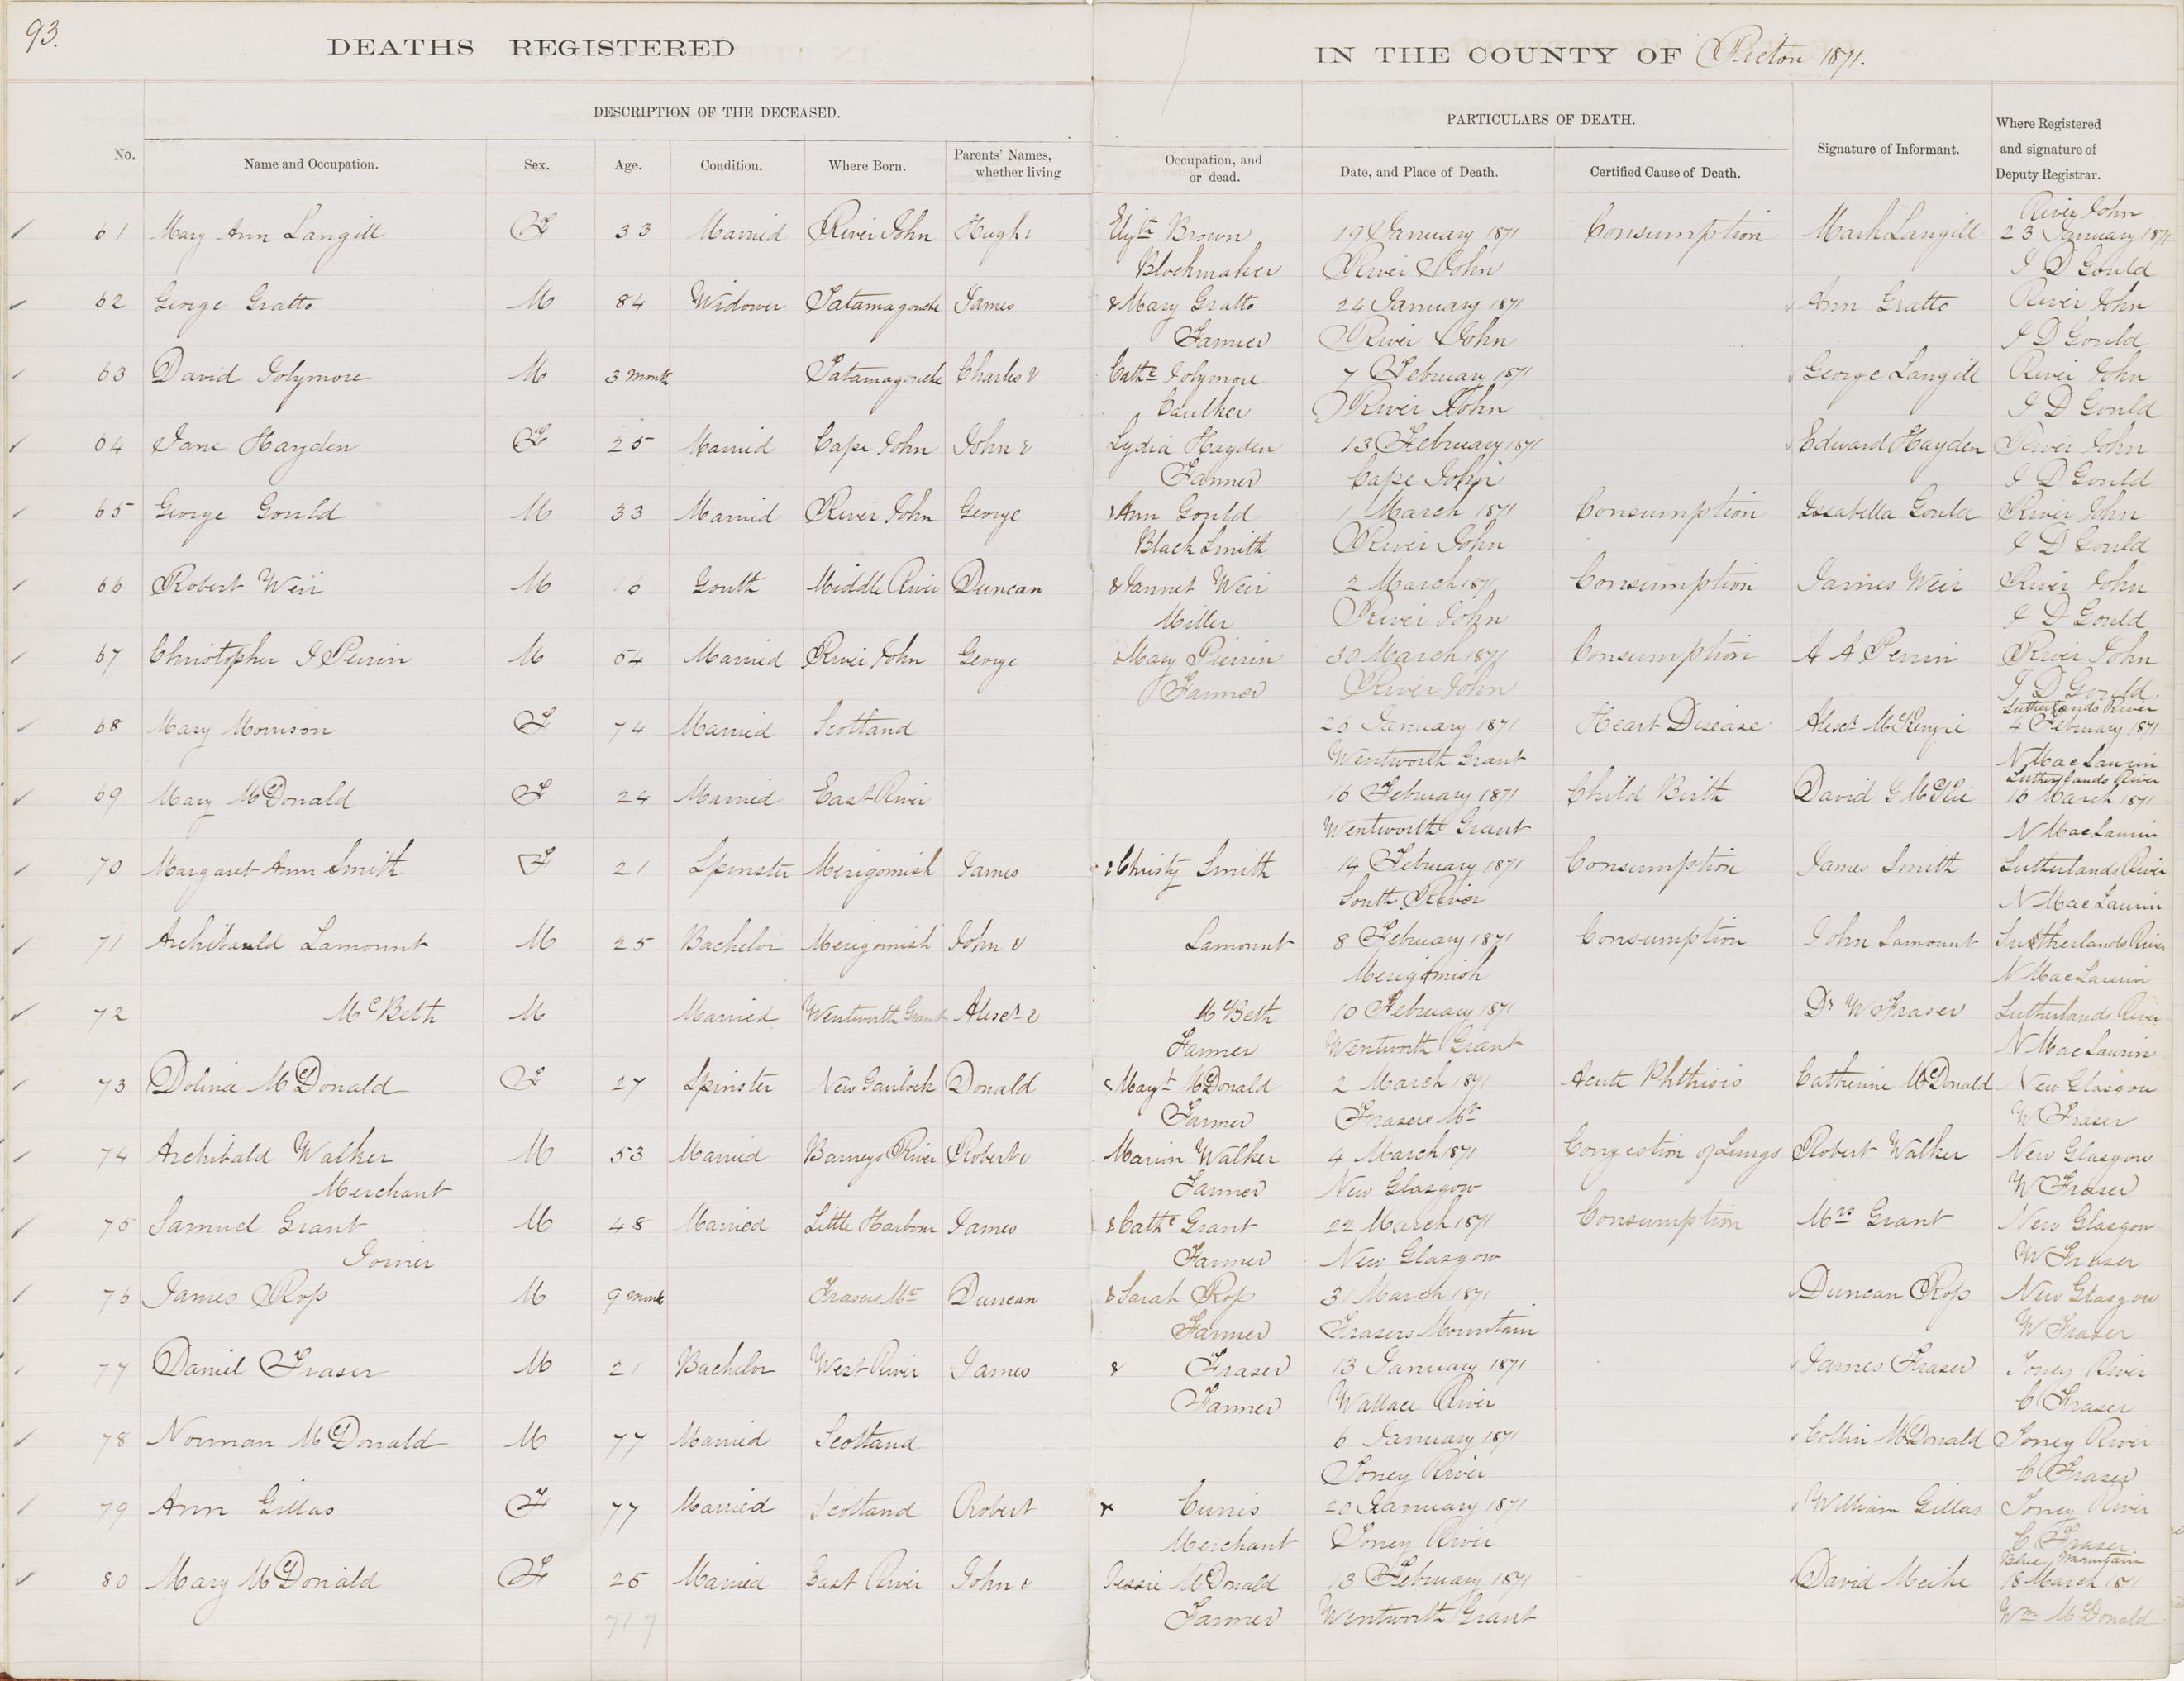 93.
DEATHS REGISTERED IN THE COUNTY OF Pictou 1871.
DESCRIPTION OF THE DECEASED. PARTICULARS OF DEATH.
No. Name and Occupation. Sex. Age. Condition. Where Born. Parents' Names, whether living Occupation, and or dead. Date, and Place of Death. Certified Cause of Death. Signature of Informant. Where Registered and signature of Deputy Registrar.
River John
61 Mary Ann Langill F 33 Married River John Hugh & Elizth Brown 19 January 1871 Consumption Mark Langill 23 January 1871
Blockmaker River John I D Gould
62 George Gratto M 84 Widower Tatamagouche James & Mary Gratto 24 January 1871 Ann Gratto River John
Farmer River John I D Gould
63 David Jolymore M 3 month Tatamagouche Charles & Cathe Jolymore 7 February 1871 George Langill River John
Caulker River John I D Gould
64 Jane Hayden F 25 Married Cape John John & Lydia Hayden 13 February 1871 Edward Hayden River John
Farmer Cape John I D Gould
65 George Gould M 33 Married River John George & Ann Gould 1 March 1871 Consumption Issabella Gould River John
Black Smith River John I D Gould
66 Robert Weir M 16 Youth Middle River Duncan & Jannet Weir 2 March 1871 Consumption James Weir River John
Miller River John I D Gould
67 Christopher I Perrin M 54 Married River John George & Mary Pierrin 30 March 1871 Consumption A A Perrin River John
Farmer River John I D Gould
Sutherlands River
68 Mary Morrison F 74 Married Scotland 26 January 1871 Heart Disease Alexr McKenzie 4 February 1871
Wentworth Grant N MacLaurin
Sutherlands River
69 Mary McDonald F 24 Married East River 16 February 1871 Child Birth David G 16 March 1871
Wentworth Grant N MacLaurin
70 Margaret Ann Smith F 21 Spinster Merigomish James & Christy Smith 14 February 1871 Consumption James Smith Sutherlands River
South River N MacLaurin
71 Archibauld Lamount M 25 Bachelor Merigomish John & Lamount 8 February 1871 Consumption John Lamount Sutherlands River
Merigomish N MacLaurin
72 McBeth M Married Wentworth Grant Alexr & McBeth 10 February 1871 Dr W Fraser Sutherlands River
Farmer Wentworth Grant N MacLaurin
73 Dolina McDonald F 27 Spinster New Gairloch Donald & Mayt McDonald 2 March 1871 Acute Phthisis Catherine McDonald New Glasgow
Farmer Frasers Mt W Fraser
74 Archibald Walker M 53 Married Barneys River Robert & Marion Walker 4 March 1871 Congestion of Lungs Robert Walker New Glasgow
Merchant Farmer New Glasgow W Fraser
75 Samuel Grant M 48 Married Little Harbour James & Cathe Grant 22 March 1871 Consumption Mrs Grant New Glasgow
Joiner Farmer New Glasgow W Fraser
76 James Ross M 9 month Frasers Mt Duncan & Sarah Ross 31 March 1871 Duncan Ross New Glasgow
Farmer Frasers Mountain W Fraser
77 Daniel Fraser M 21 Bachelor West River James & Fraser 13 January 1871 James Fraser Toney River
Farmer Wallace River C Fraser
78 Norman McDonald M 77 Married Scotland 6 January 1871 Collin McDonald Toney River
Toney River C Fraser
79 Ann Gillas F 77 Married Scotland Robert x Cunis 20 January 1871 William Gillas Toney River
Merchant Toney River C Fraser
Blue Mountain
80 Mary McDonald F 25 Married East River John & Jessie McDonald 13 February 1871 David Meike 18 March 1871
Farmer Wentworth Grant Wm McDonald
717